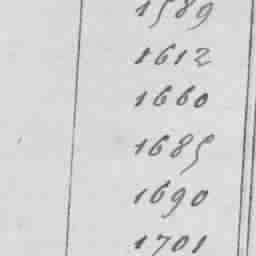 1589
1612
1660
1685
1690
1701